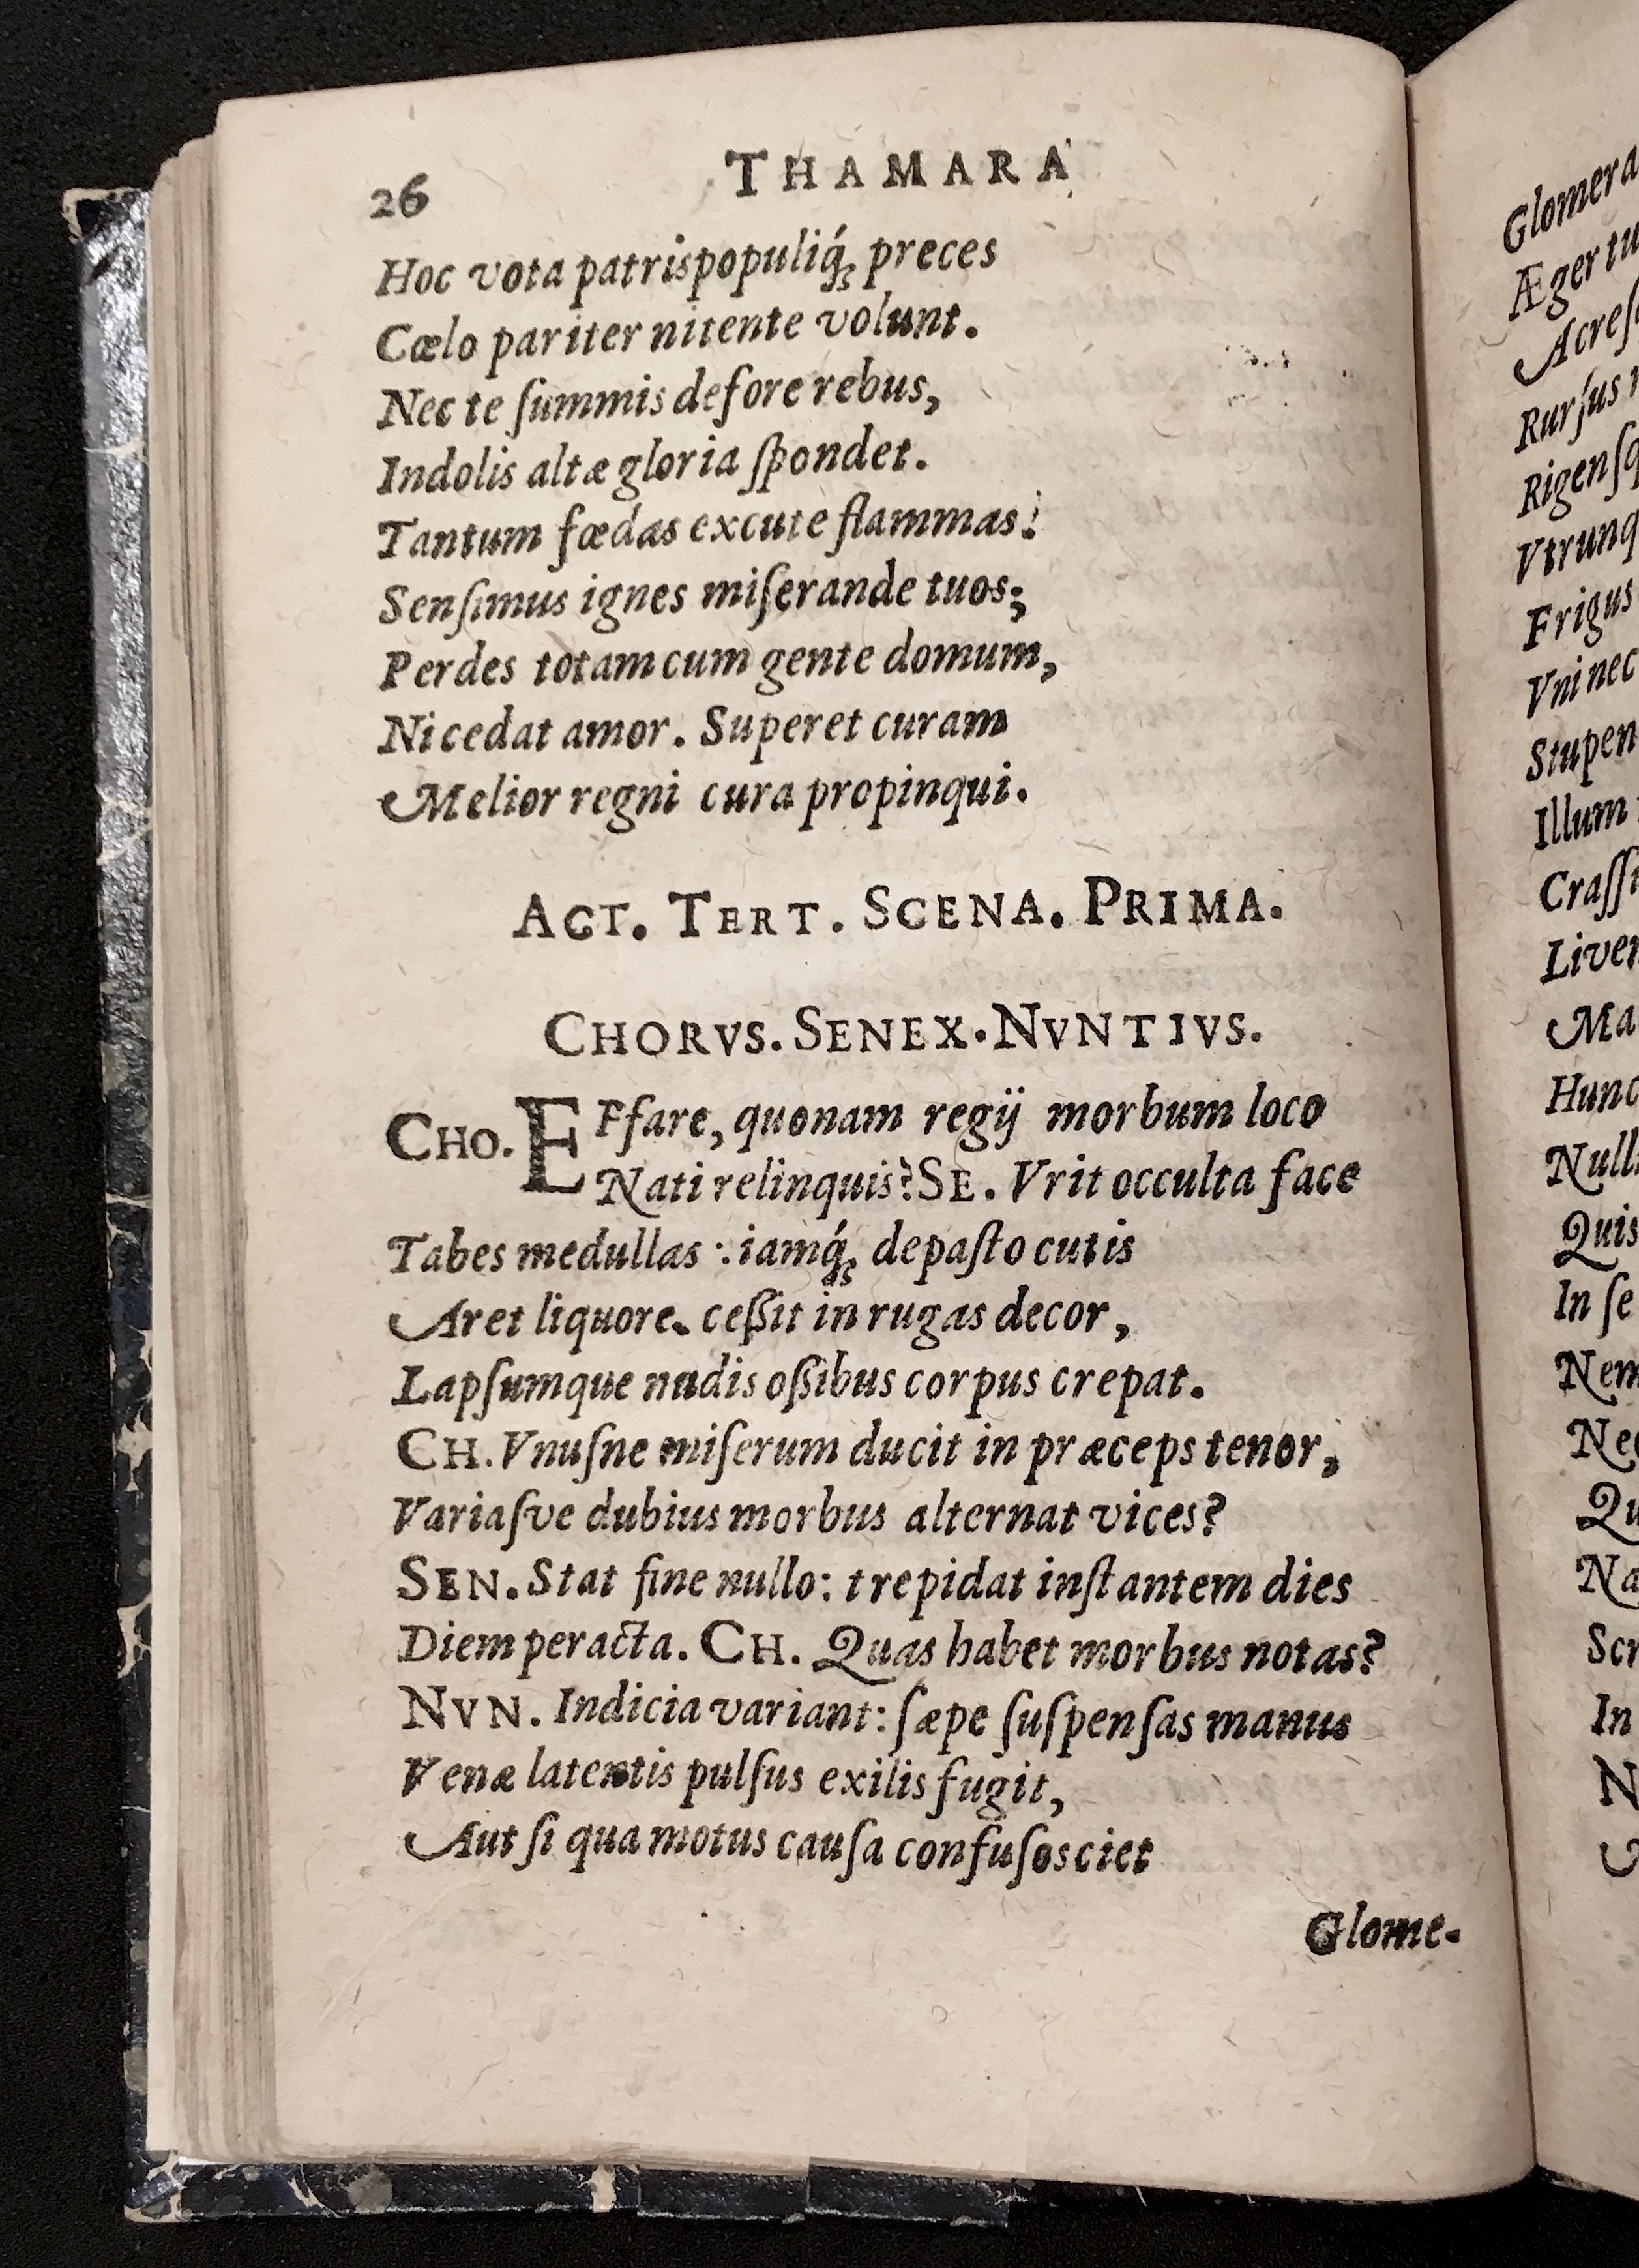 26 THAMARA
Hoc vota patrispopuliq́ꝫ preces
Cœlo pariter nitente volunt.
Nec te ſummis defore rebus,
Indolis altæ gloria ſpondet.
Tantum fœdas excute flammas!
Senſimus ignes miſerande tuos;
Perdes totam cum gente domum,
Ni cedat amor. Superet curam
Melior regni cura propinqui.
ACT. TERT. SCENA. PRIMA.
CHORVS. SENEX. NVNTIVS.
CHO. EFfare, quonam regij morbum loco
Nati relinquis? SE. Vrit occulta face
Tabes medullas: iamq́ꝫ depaſto cutis
Aret liquore. ceßit in rugas decor,
Lapſumque nudis oßibus corpus crepat.
CH. Vnuſne miſerum ducit in præceps tenor,
Variaſve dubius morbus alternat vices?
SEN. Stat fine nullo: trepidat inſtantem dies
Diem peracta. CH. Quas habet morbus notas?
NVN. Indicia variant: ſæpe ſuſpenſas manus
Venæ latentis pulſus exilis fugit,
Aut ſi qua motus cauſa confuſos ciet
Glome-
Glomera
Æger tu
Acreſ
Rurſus
Rigenſq
Vtrunq
Frigus
Vni nec
Stupen
Illum
Craſſi
Liver
Ma
Hunc
Nulli
Quis
In ſe
Nem
Nec
Qu
Na
Scr
In
N